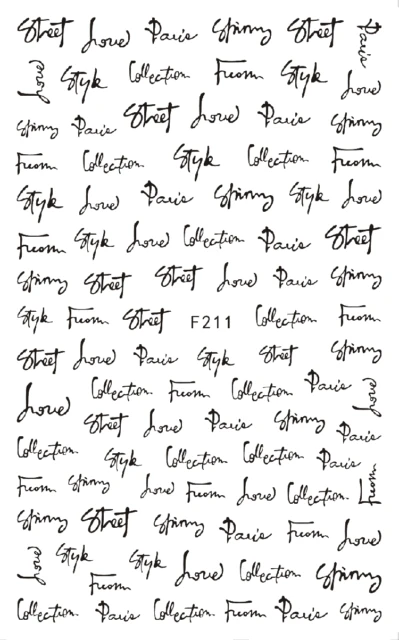 Street Love Paris Spinny Street Paris
Love Style Collection. From Style Love
Spinny Paris Street Love Paris Spinny
From Collection. Style Collection. From
Style Love Paris Spinny Style Love
From Style Love Collection. Paris Street
Spinny Street Street Love Paris Spinny
Style From Street F211 Collection. From
Street Love Paris Style Street Spinny
Love Collection. From Collection. Paris Love
Street Love Paris Spinny Paris
Collection. Style Collection. Collection. Paris
From Spinny Love From Love Collection. From
Spinny Street Spinny Paris From Love
Love Style From Style Love Collection. Spinny
Collection. Paris Collection. From Paris Spinny